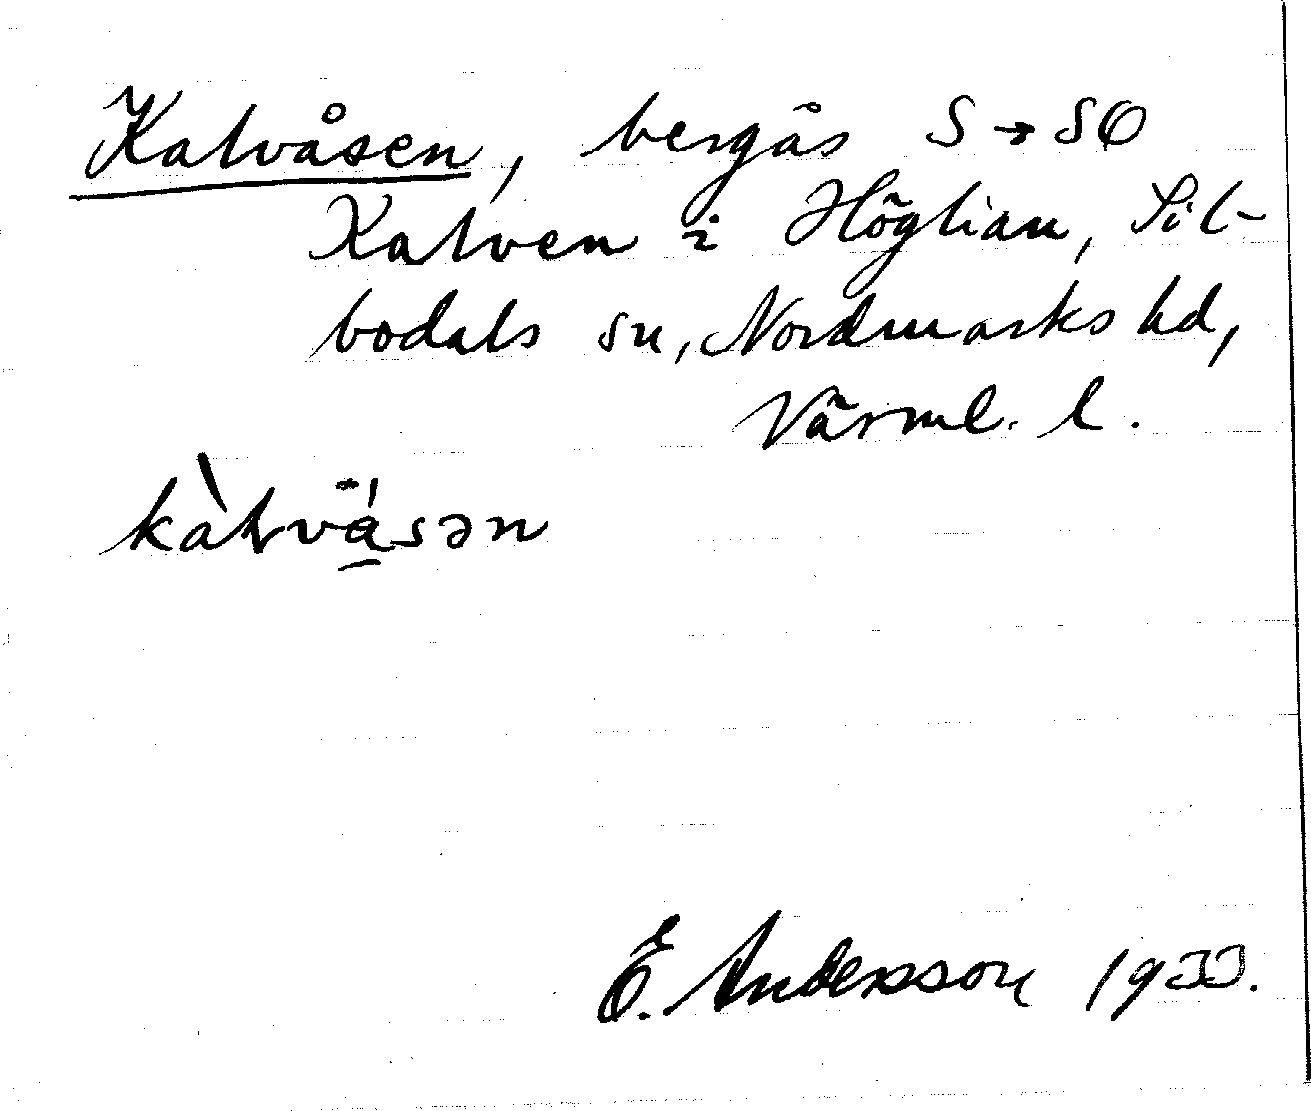 Kalvåsen, bergås S → SO
Kalven i Höglian, Sil-
bodals sn, Nordmarks hd,
Värml. l.
kàlvå̱sən
E. Andersson 1933.